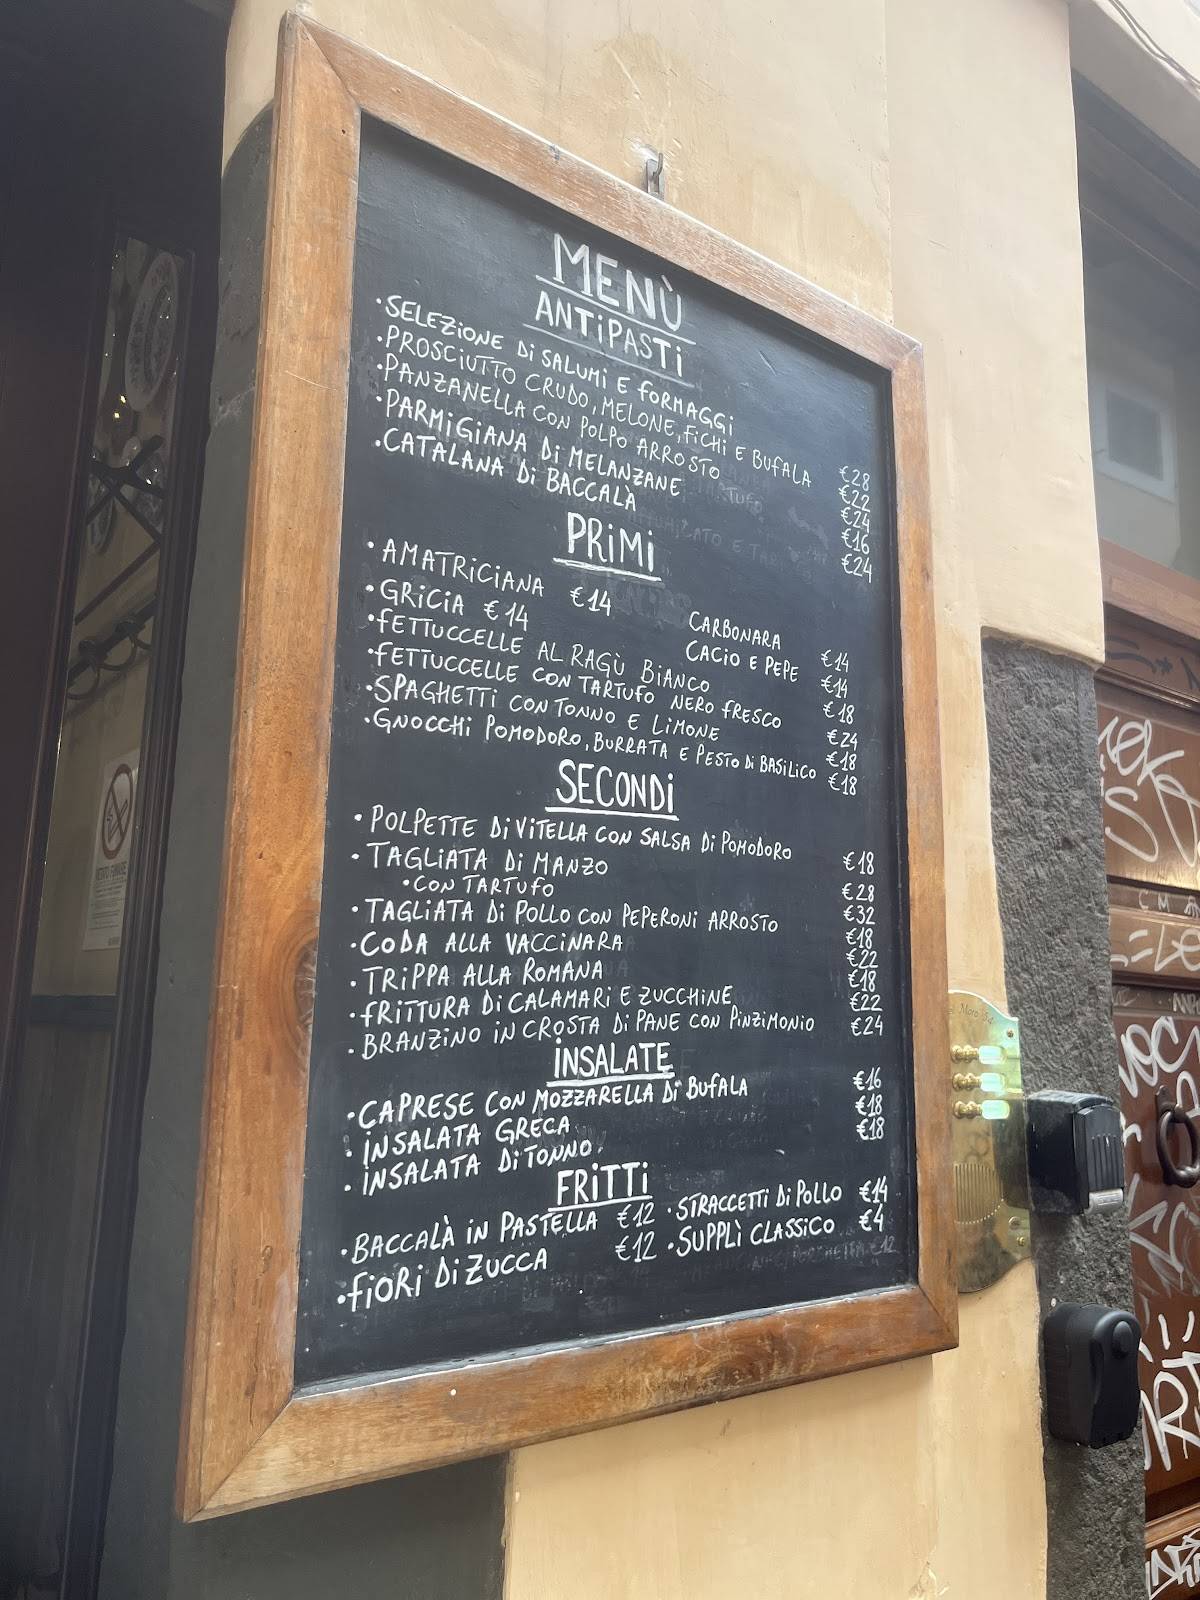 MENÙ
ANTIPASTI
· SELEZIONE DI SALUMI E FORMAGGI €28
· PROSCIUTTO CRUDO, MELONE, FICHI E BUFALA €22
· PANZANELLA CON POLPO ARROSTO €24
· PARMIGIANA DI MELANZANE €16
· CATALANA DI BACCALÀ €24
PRIMI
· AMATRICIANA €14 CARBONARA €14
· GRICIA €14 CACIO E PEPE €14
· FETTUCCELLE AL RAGÙ BIANCO €18
· FETTUCCELLE CON TARTUFO NERO FRESCO €24
· SPAGHETTI CON TONNO E LIMONE €18
· GNOCCHI POMODORO, BURRATA E PESTO DI BASILICO €18
SECONDI
· POLPETTE DI VITELLA CON SALSA DI POMODORO €18
· TAGLIATA DI MANZO €28
· CON TARTUFO €32
· TAGLIATA DI POLLO CON PEPERONI ARROSTO €18
· CODA ALLA VACCINARA €22
· TRIPPA ALLA ROMANA €18
· FRITTURA DI CALAMARI E ZUCCHINE €22
· BRANZINO IN CROSTA DI PANE CON PINZIMONIO €24
INSALATE
· CAPRESE CON MOZZARELLA DI BUFALA €16
· INSALATA GRECA €18
· INSALATA DI TONNO. €18
FRITTI
· BACCALÀ IN PASTELLA €12 · STRACCETTI DI POLLO €14
· FIORI DI ZUCCA €12 · SUPPLÌ CLASSICO €4
VIETATO FUMARE